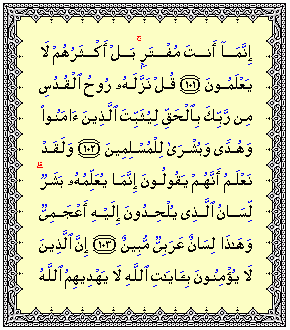 إِنَّمَآ أَنتَ مُفْتَرٍۭ ۚ بَلْ أَكْثَرُهُمْ لَا
يَعْلَمُونَ ﴿١٠١﴾ قُلْ نَزَّلَهُۥ رُوحُ ٱلْقُدُسِ
مِن رَّبِّكَ بِٱلْحَقِّ لِيُثَبِّتَ ٱلَّذِينَ ءَامَنُوا۟
وَهُدًى وَبُشْرَىٰ لِلْمُسْلِمِينَ ﴿١٠٢﴾ وَلَقَدْ
نَعْلَمُ أَنَّهُمْ يَقُولُونَ إِنَّمَا يُعَلِّمُهُۥ بَشَرٌ ۗ
لِّسَانُ ٱلَّذِى يُلْحِدُونَ إِلَيْهِ أَعْجَمِىٌّ
وَهَٰذَا لِسَانٌ عَرَبِىٌّ مُّبِينٌ ﴿١٠٣﴾ إِنَّ ٱلَّذِينَ
لَا يُؤْمِنُونَ بِـَٔايَٰتِ ٱللَّهِ لَا يَهْدِيهِمُ ٱللَّهُ